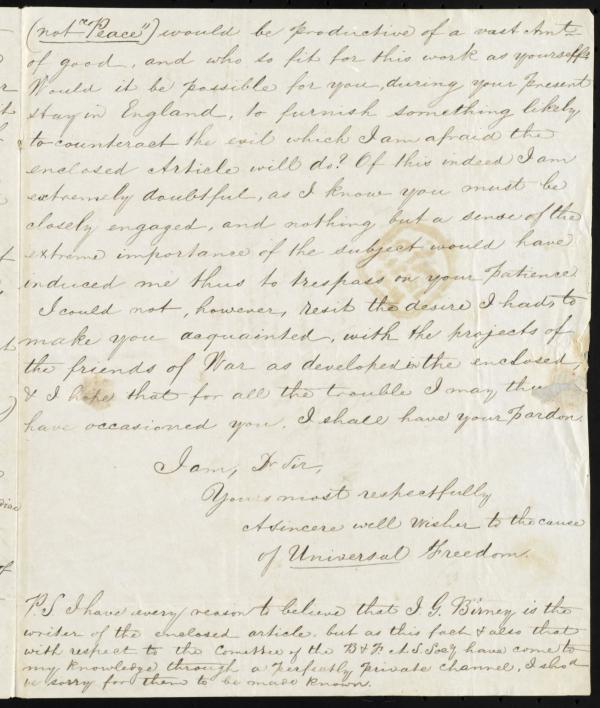 (not "Peace") would be productive of a vast Amt
of good, and who so fit for this work as yourself.
Would it be possible for you, during your present
stay in England, to furnish something likely
to counteract the evil which I am afraid the
enclosed Article will do? Of this indeed I am
extremely doubtful, as I know you must be
closely engaged, and nothing but a sense of the
extreme importance of the subject would have
induced me thus to trespass on your patience
I could not, however, resit the desire I had, to
make you acquainted, with the projects of
the friends of War as developed in the enclosed,
& I hope that for all the trouble I may thus
have occasioned you, I shall have your pardon.
I am, Dr Sir,
Yours most respectfully
A sincere well wisher to the cause
of Universal Freedom.
P.S I have every reason to believe that J G. Birney is the
writer of the enclosed article. but as this fact & also that
with respect to the Comittee of the B & F A S. Socy have come to
my knowledge through a perfectly private channel, I shod
be sorry for them to be made known.